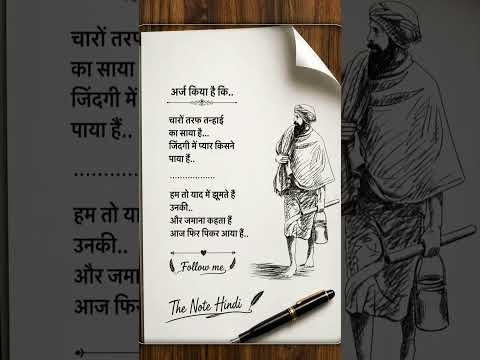 अर्ज किया है कि..
चारों तरफ तन्हाई
का साया है...
जिंदगी में प्यार किसने
पाया हैं..
..................
हम तो याद में झूमते हैं
उनकी..
और जमाना कहता हैं
आज फिर पिकर आया हैं..
Follow me
The Note Hindi
चारों तरफ
का साया
जिंदगी में
पाया हैं..
हम तो या
उनकी..
और जमान
आज फिर